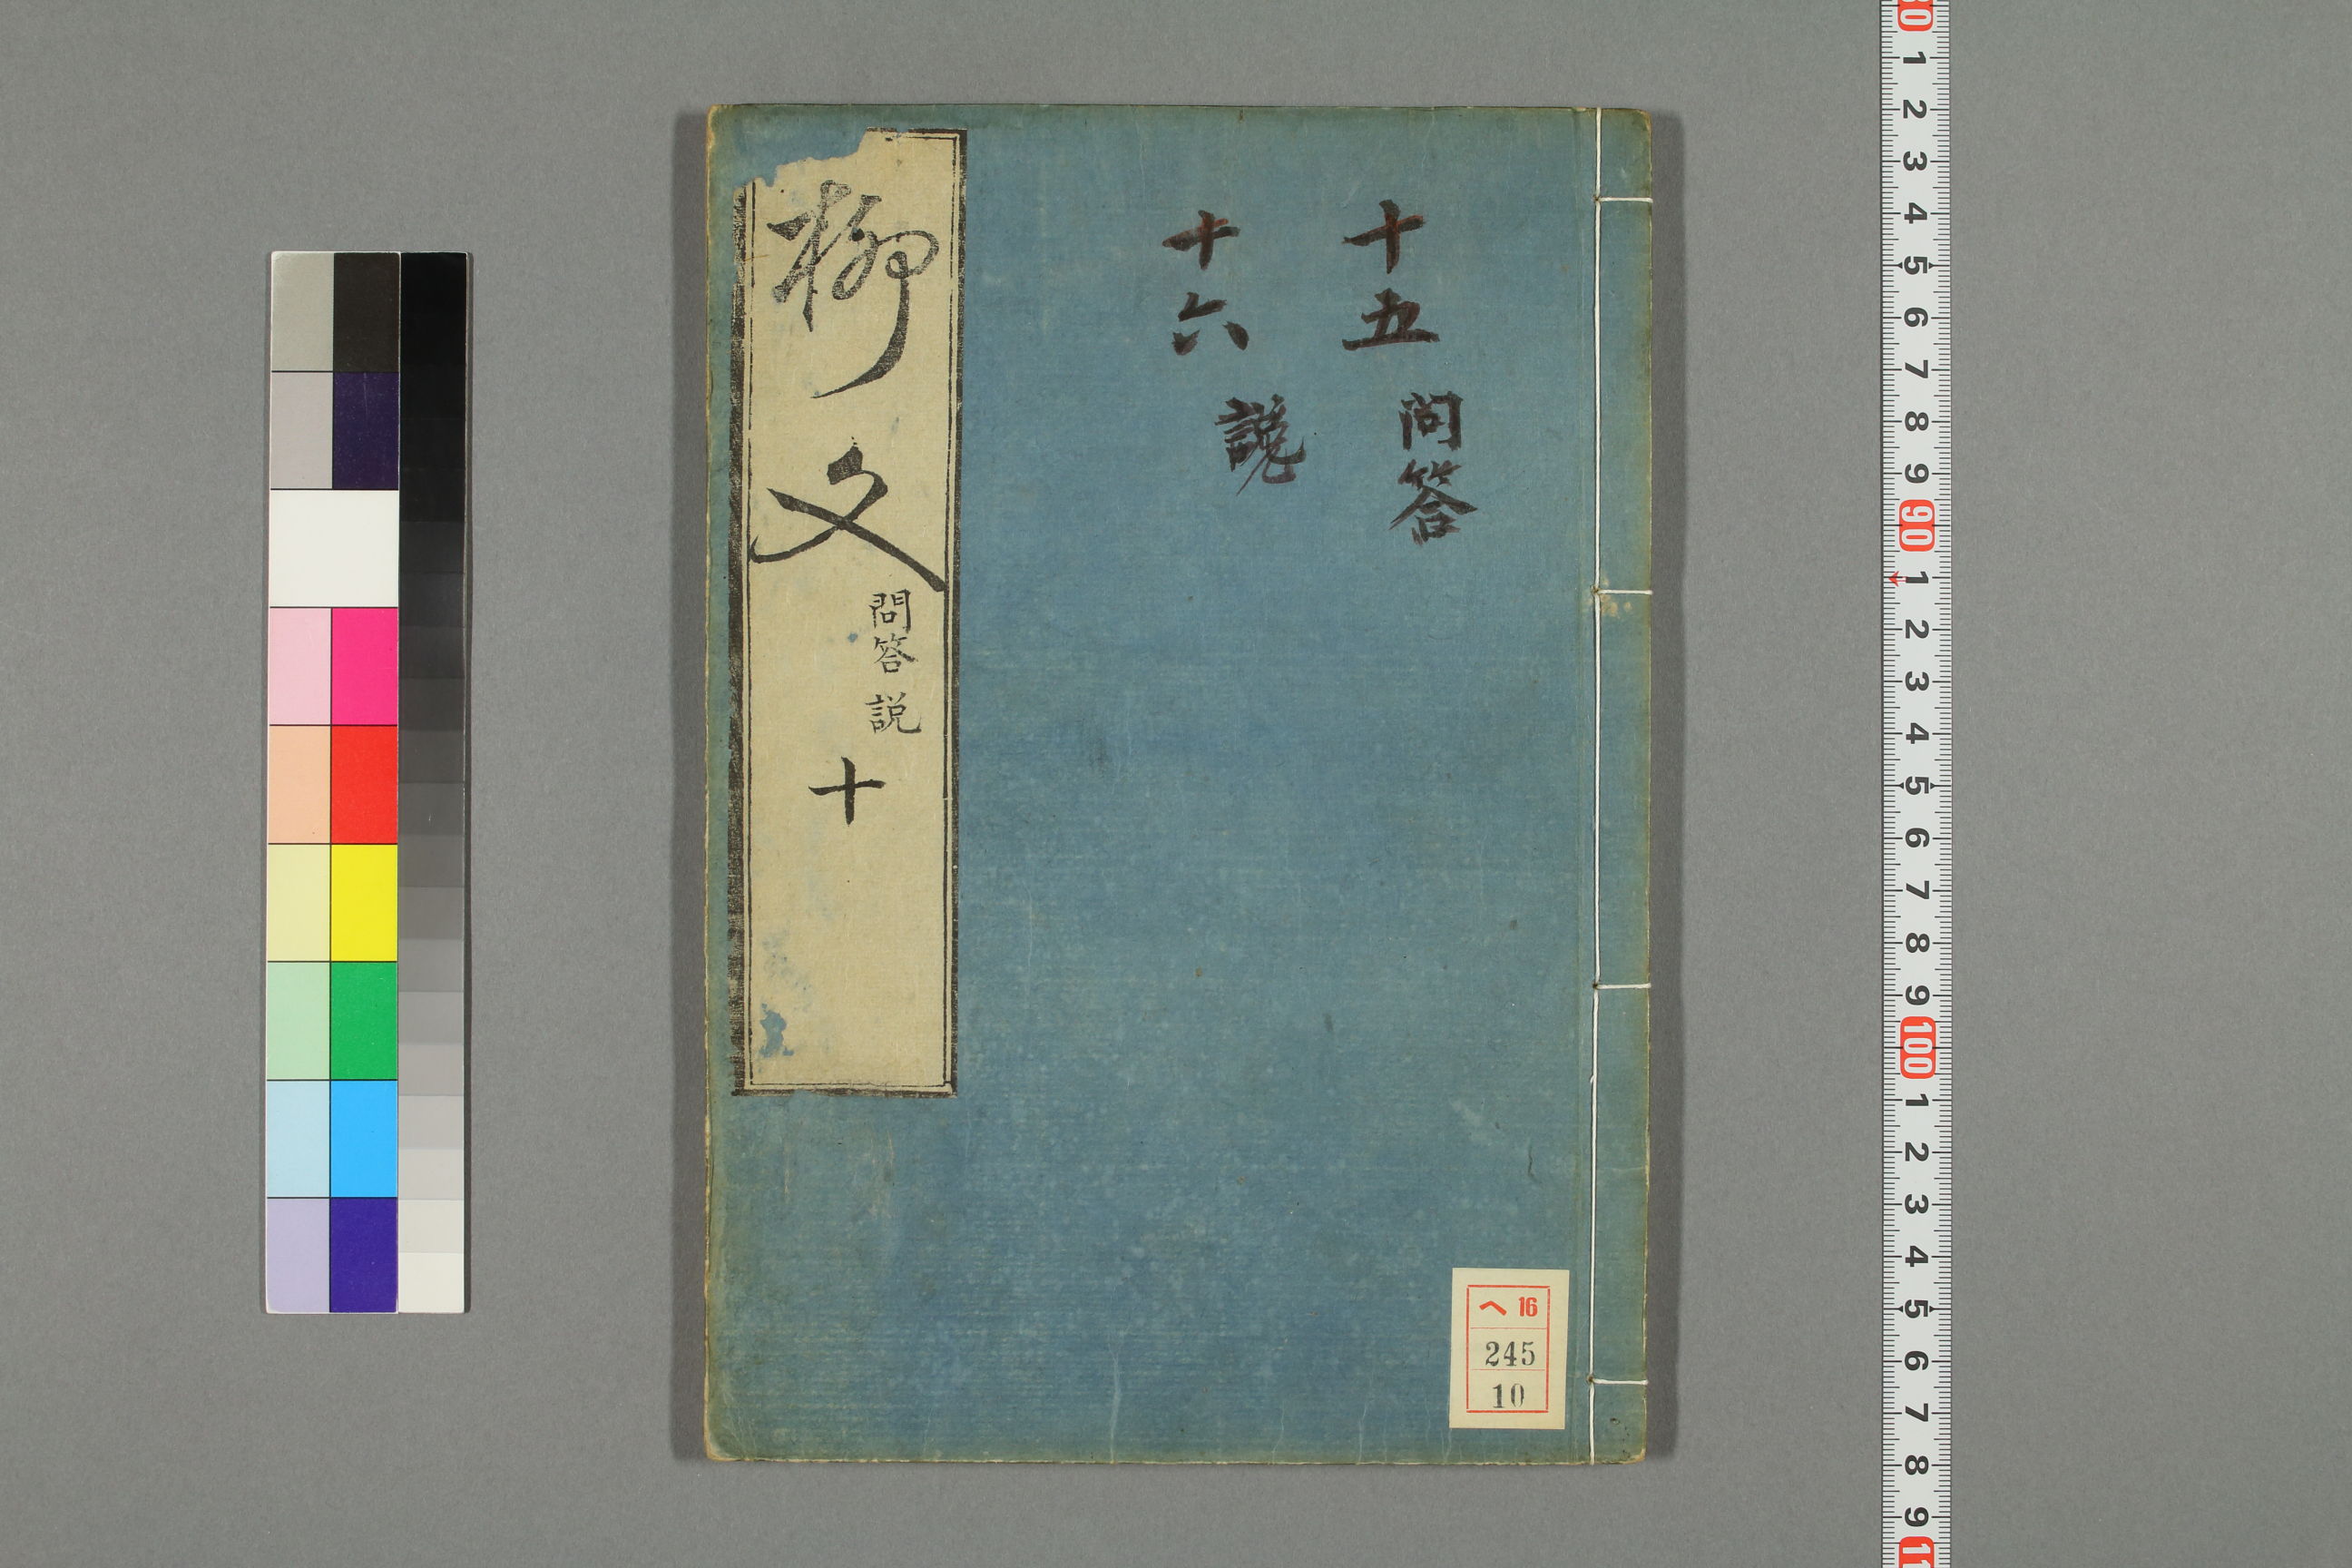 十五 問答
十六 説
柳文 問答 説 十
ヘ 16
245
10
80 1 2 3 4 5 6 7 8 9 90 1 2 3 4 5 6 7 8 9 100 1 2 3 4 5 6 7 8 9